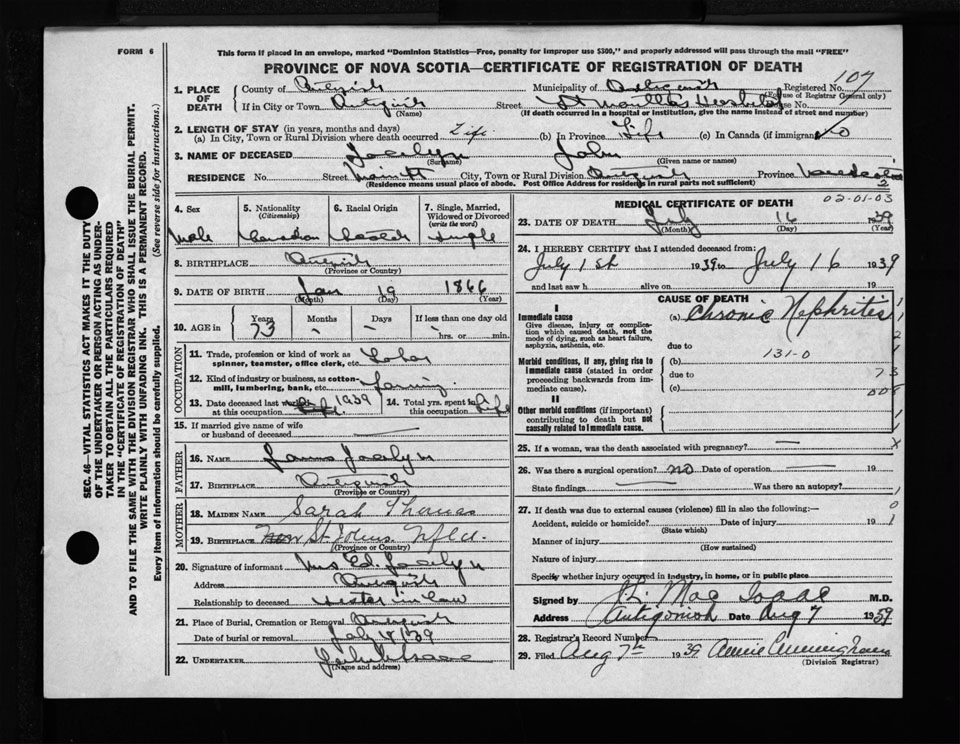 FORM 6
This form if placed in an envelope, marked "Dominion Statistics—Free, penalty for improper use $300," and properly addressed will pass through the mail "FREE"
PROVINCE OF NOVA SCOTIA—CERTIFICATE OF REGISTRATION OF DEATH
SEC. 46—VITAL STATISTICS ACT MAKES IT THE DUTY OF THE UNDERTAKER OR PERSON ACTING AS UNDERTAKER TO OBTAIN ALL THE PARTICULARS REQUIRED IN THE "CERTIFICATE OF REGISTRATION OF DEATH"
AND TO FILE THE SAME WITH THE DIVISION REGISTRAR WHO SHALL ISSUE THE BURIAL PERMIT.
WRITE PLAINLY WITH UNFADING INK. THIS IS A PERMANENT RECORD.
Every item of Information should be carefully supplied. (See reverse side for instructions.)
1. PLACE OF DEATH County of Antigonish Municipality of Antigonish Registered No. 107
(For use of Registrar General only)
If in City or Town Antigonish (Name) Street St Martha's Hospital House No.
(If death occurred in a hospital or institution, give the name instead of street and number)
2. LENGTH OF STAY (in years, months and days)
(a) In City, Town or Rural Division where death occurred Life (b) In Province Life (c) In Canada (if immigrant) No
3. NAME OF DECEASED Jocelyn (Surname) John (Given name or names)
RESIDENCE No. Street City, Town or Rural Division Antigonish Province Nova Scotia
(Residence means usual place of abode. Post Office Address for residents in rural parts not sufficient)
2
4. Sex Male
5. Nationality (Citizenship) Canadian
6. Racial Origin
7. Single, Married, Widowed or Divorced (write the word) Single
8. BIRTHPLACE Antigonish (Province or Country)
9. DATE OF BIRTH Jan (Month) 19 (Day) 1866 (Year)
10. AGE in Years 73 Months – Days – If less than one day old hrs. or min.
OCCUPATION
11. Trade, profession or kind of work as spinner, teamster, office clerk, etc. Labor
12. Kind of industry or business, as cotton mill, lumbering, bank, etc. farming
13. Date deceased last worked at this occupation 1939
14. Total yrs. spent in this occupation Life
15. If married give name of wife or husband of deceased —
FATHER
16. NAME Jocelyn
17. BIRTHPLACE Antigonish (Province or Country)
MOTHER
18. MAIDEN NAME Sarah Thomas
19. BIRTHPLACE St Johns Nfld. (Province or Country)
20. Signature of informant Mrs Ed. Jocelyn
Address Antigonish
Relationship to deceased sister in law
21. Place of Burial, Cremation or Removal Antigonish
Date of burial or removal July 18/39
22. UNDERTAKER
(Name and address)
MEDICAL CERTIFICATE OF DEATH
02-01-03
23. DATE OF DEATH July (Month) 16 (Day) 1939 (Year)
24. I HEREBY CERTIFY that I attended deceased from:
July 1st 1939 to July 16 1939
and last saw h alive on 19
CAUSE OF DEATH
I
Immediate cause (a) Chronic Nephritis
Give disease, injury or complication which caused death, not the mode of dying, such as heart failure, asphyxia, asthenia, etc.
due to
Morbid conditions, if any, giving rise to immediate cause (stated in order proceeding backwards from immediate cause).
(b) 131-0
due to 73
(c) 008
II
Other morbid conditions (if important) contributing to death but not causally related to immediate cause.
25. If a woman, was the death associated with pregnancy? — X
26. Was there a surgical operation? no Date of operation — 19
State findings — Was there an autopsy?
27. If death was due to external causes (violence) fill in also the following:— 0
Accident, suicide or homicide? (State which) Date of injury 19 1
Manner of injury (How sustained)
Nature of injury
Specify whether injury occurred in industry, in home, or in public place
Signed by Mac Isaac M.D.
Address Antigonish Date Aug 7 1939
28. Registrar's Record Number
29. Filed Aug 7th 1939 Annie Cunningham (Division Registrar)